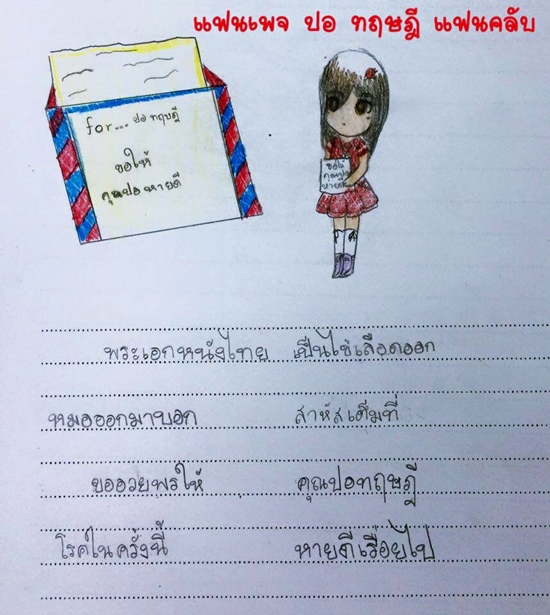 แฟนเพจ ปอ ทฤษฎี แฟนคลับ
for... ปอ ทฤษฎี
ขอให้
คุณปอ หายดี
ขอให้
คุณปอ
หายดี
พระเอกหนังไทย เป็นไข้เลือดออก
หมอออกมาบอก สาหัสเต็มที่
ขออวยพรให้ คุณปอทฤษฎี
โรคในครั้งนี้ หายดีเรื่อยไป